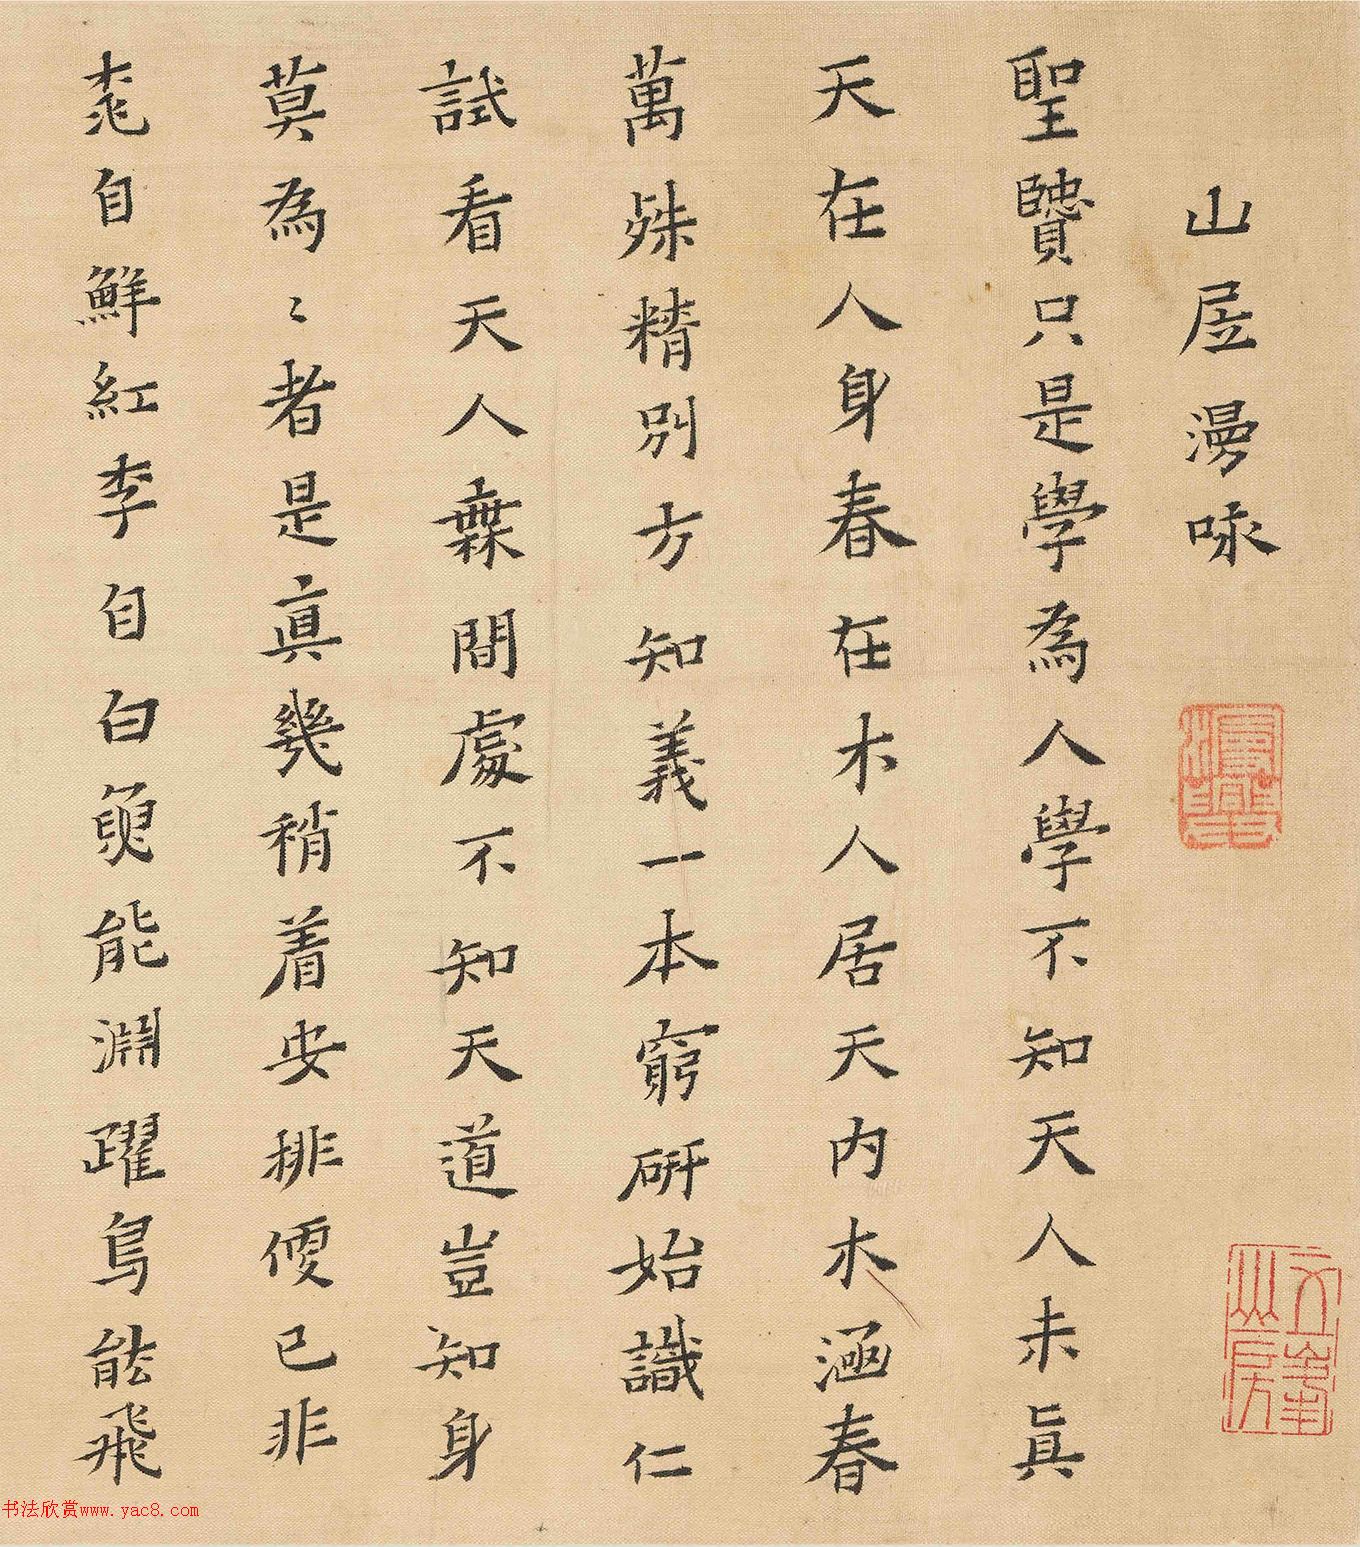 山居漫咏
聖贒只是學為人學不知天人未眞
天在人身春在木人居天内木涵春
萬殊精别方知義一本窮研始識仁
試看天人無間處不知天道豈知身
莫為〻者是眞幾稍着安排便已非
桃自鮮紅李自白魚能淵躍鳥能飛
书法欣赏www.yac8.com